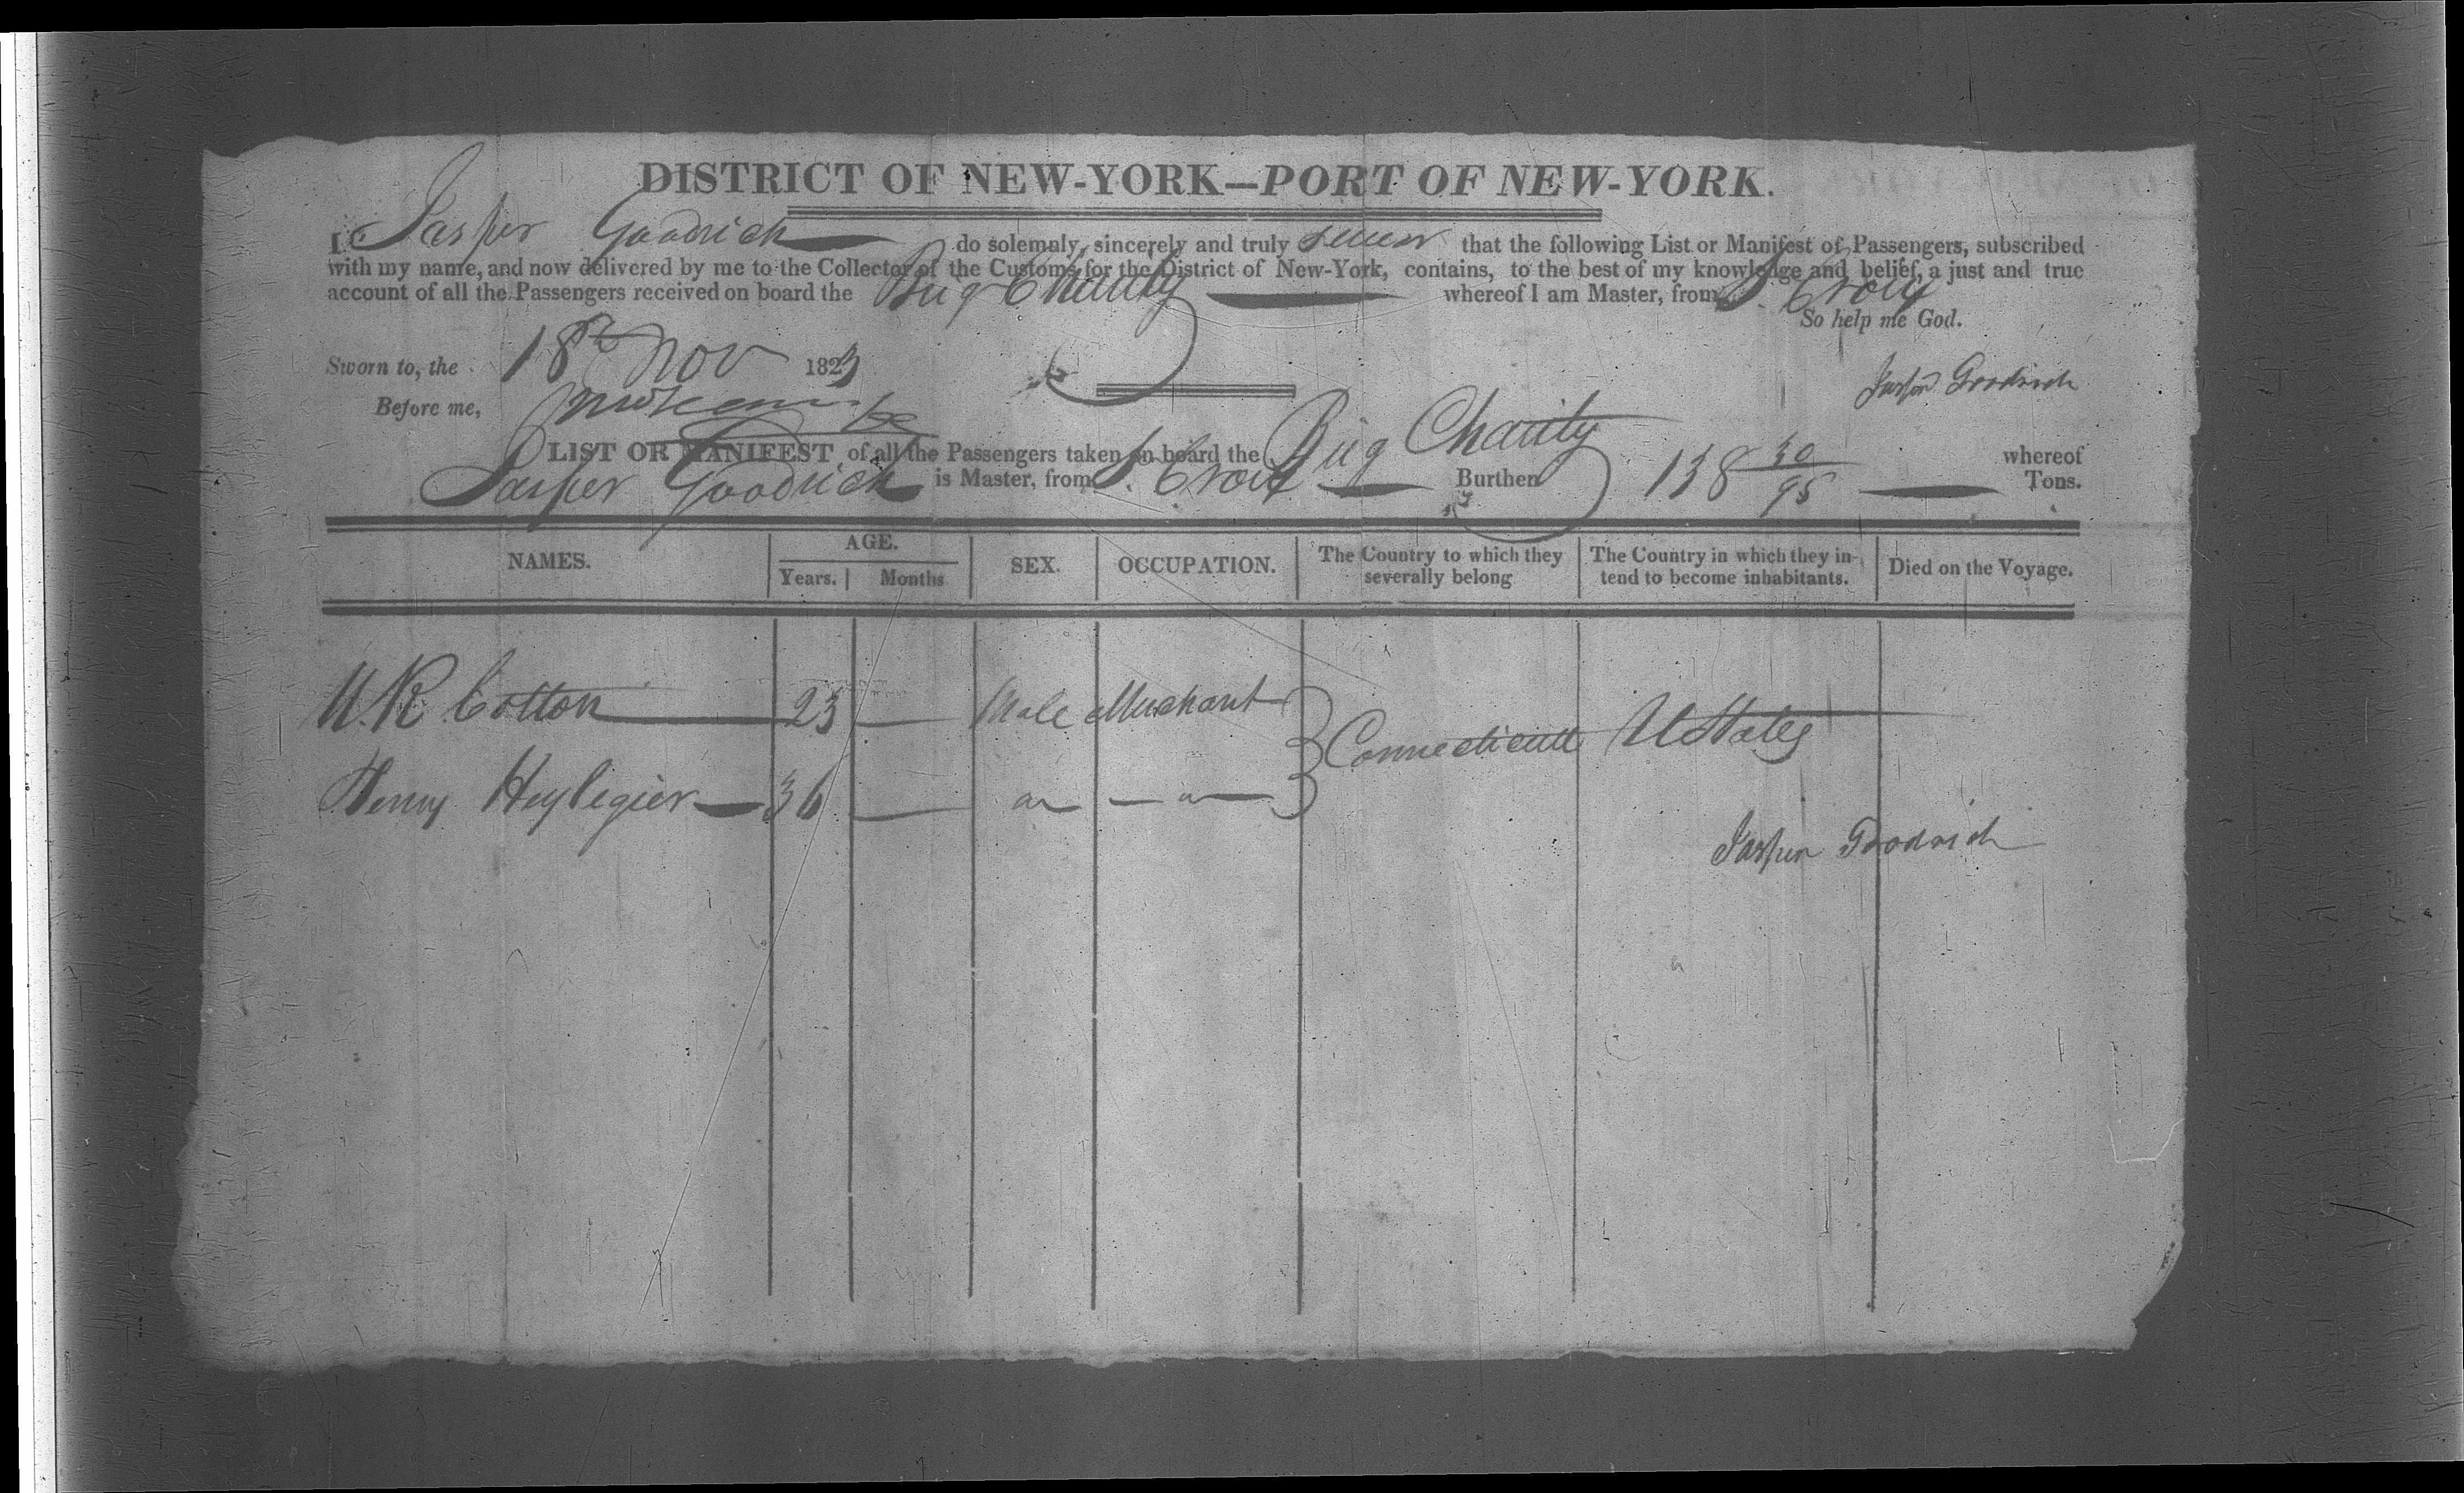 DISTRICT OF NEW-YORK—PORT OF NEW-YORK.
I Jasper Goodrich do solemnly, sincerely and truly swear that the following List or Manifest of Passengers, subscribed
with my name, and now delivered by me to the Collector of the Customs for the District of New-York, contains, to the best of my knowledge and belief, a just and true
account of all the Passengers received on board the Brig Charity whereof I am Master, from St. Croix
So help me God.
Sworn to, the 18th Nov 1823
Jasper Goodrich
Before me,
LIST OR MANIFEST of all the Passengers taken on board the Brig Charity whereof
Jasper Goodrich is Master, from St. Croix Burthen 138 30/95 Tons.
NAMES. AGE. Years. Months SEX. OCCUPATION. The Country to which they severally belong The Country in which they intend to become inhabitants. Died on the Voyage.
W. R Cotton 23 — Male Merchant
Connecticutt U States
Henry Heyleger 36 — do — do —
Jasper Goodrich